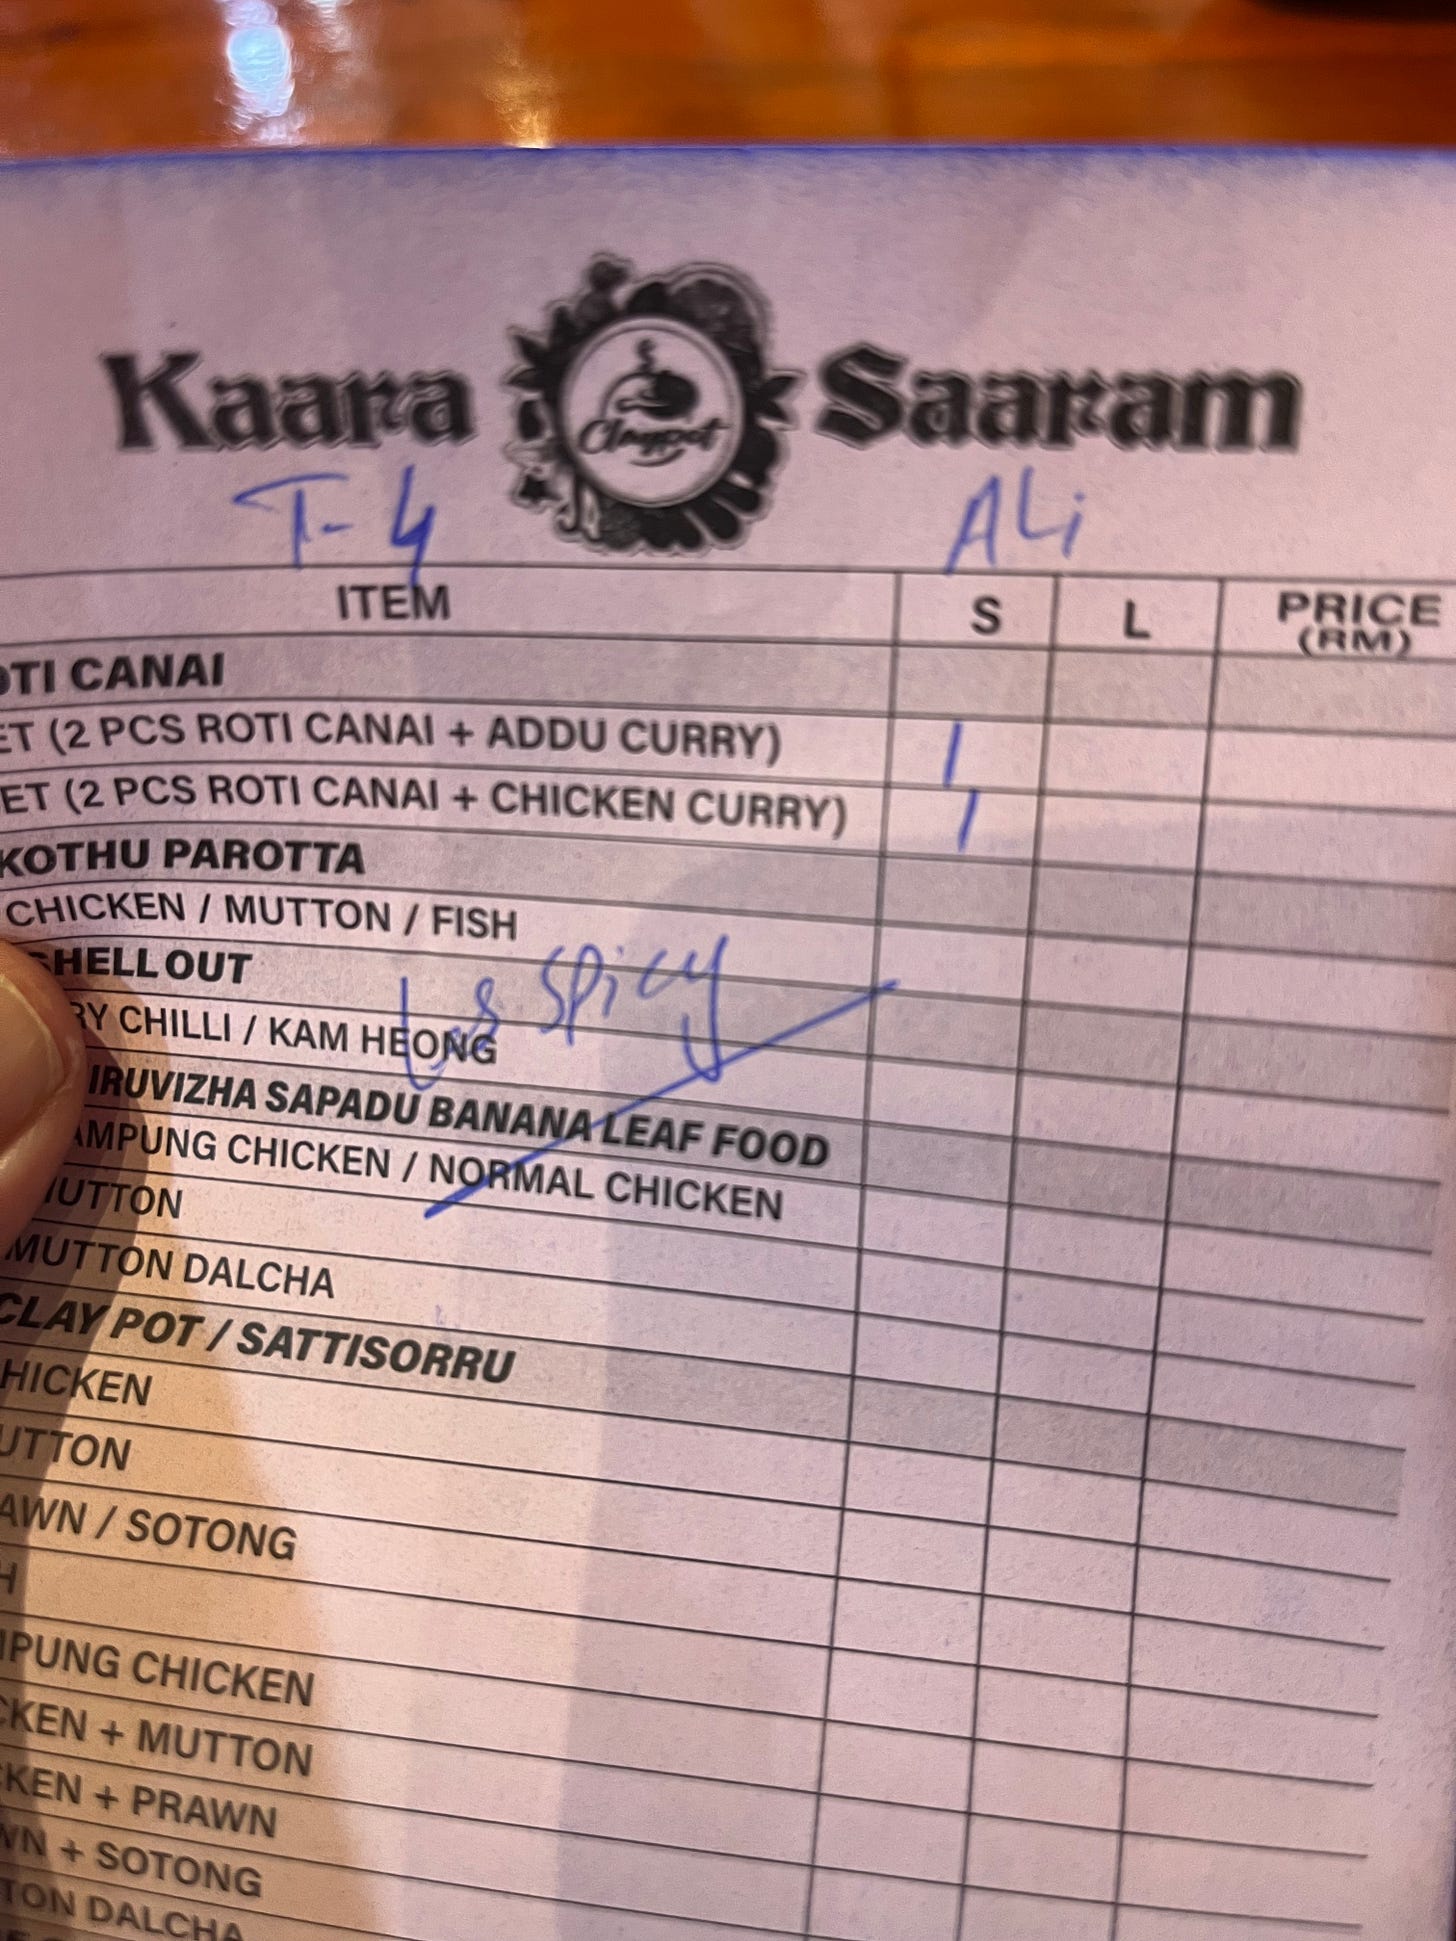 Kaara Claypot Saaram
T-4 ALi
ITEM S L PRICE (RM)
OTI CANAI
ET (2 PCS ROTI CANAI + ADDU CURRY) 1
ET (2 PCS ROTI CANAI + CHICKEN CURRY) 1
KOTHU PAROTTA
CHICKEN / MUTTON / FISH
SHELL OUT
spicy
RY CHILLI / KAM HEONG
IRUVIZHA SAPADU BANANA LEAF FOOD
AMPUNG CHICKEN / NORMAL CHICKEN
UTTON
MUTTON DALCHA
CLAY POT / SATTISORRU
HICKEN
UTTON
AWN / SOTONG
H
MPUNG CHICKEN
CKEN + MUTTON
CKEN + PRAWN
WN + SOTONG
TON DALCHA